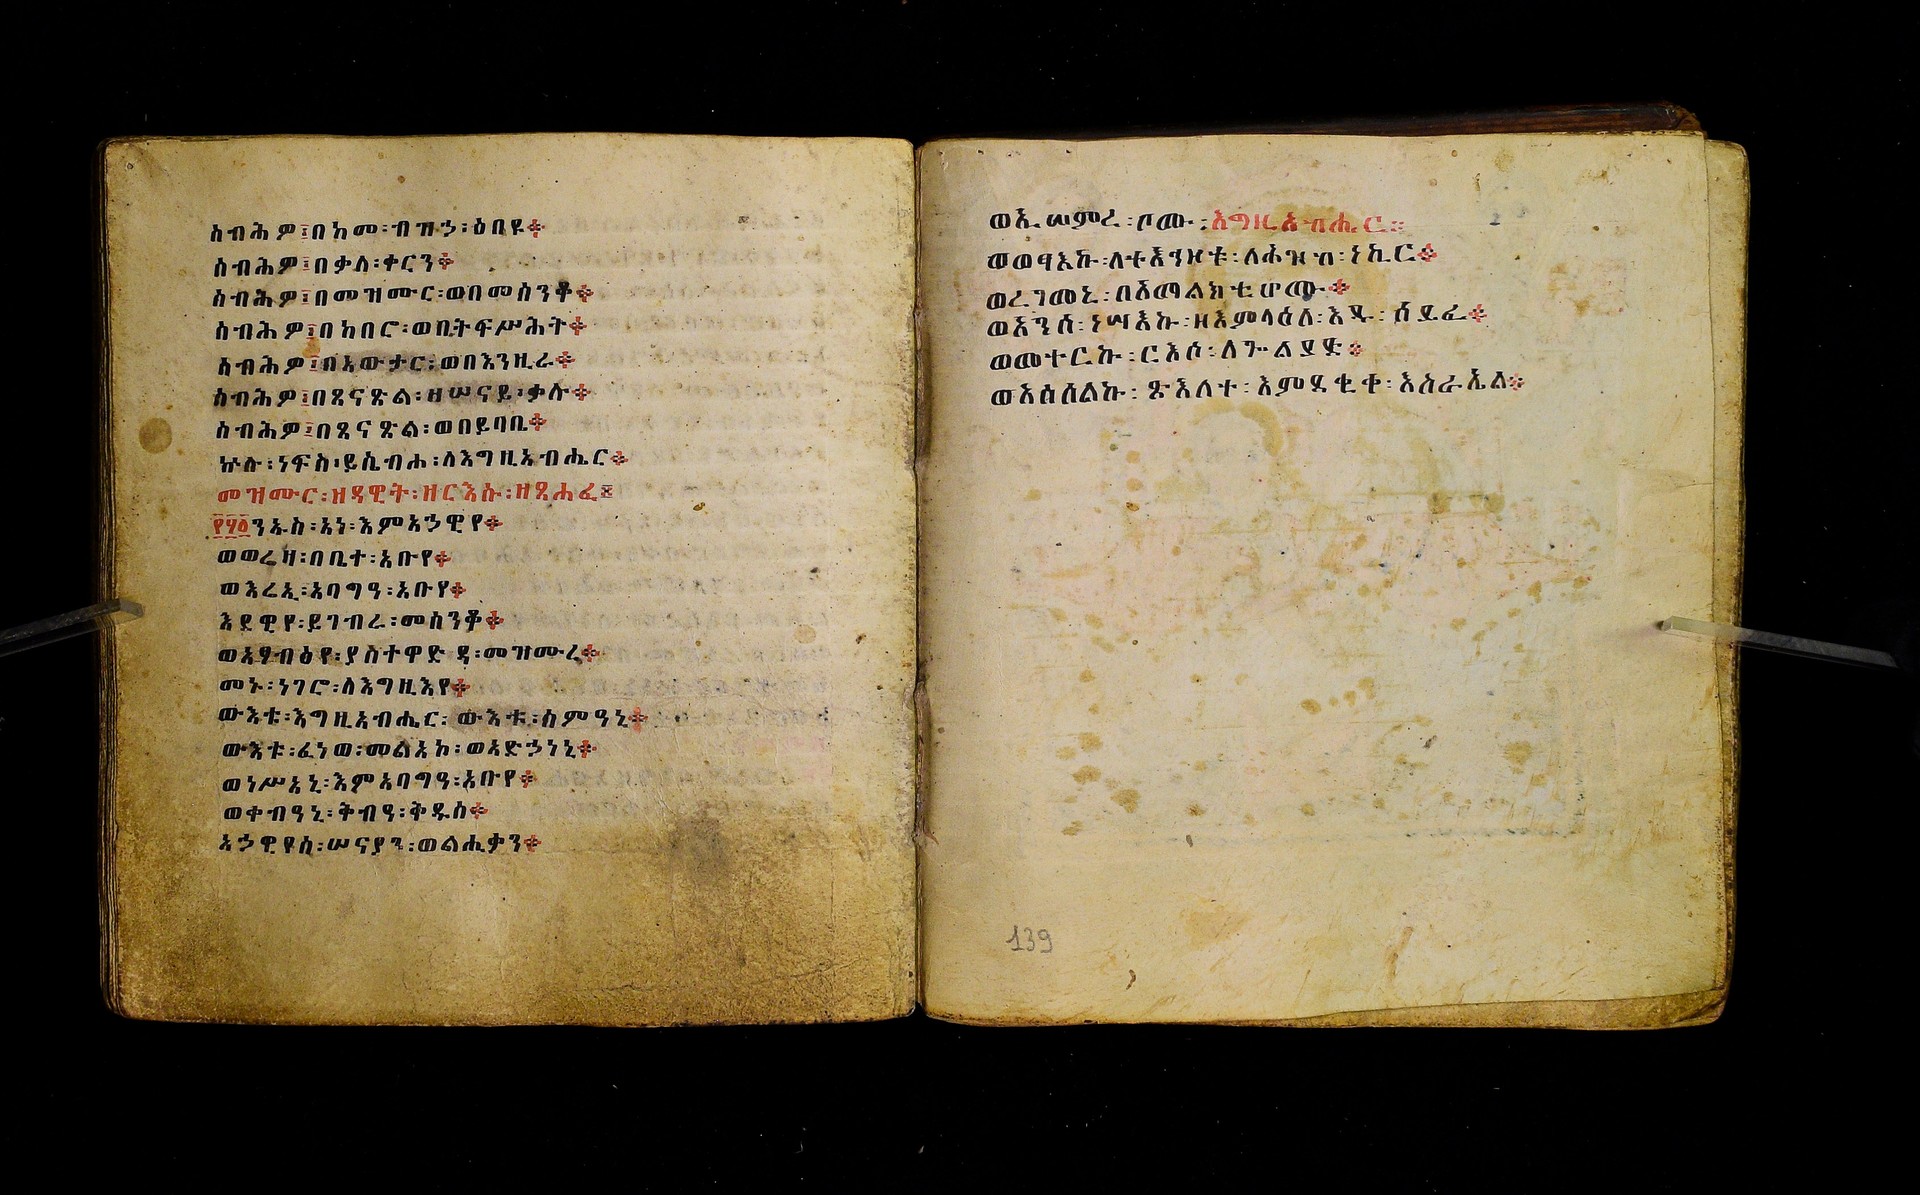 ስብሕዎ፤በከመ፡ብዝኃ፡ዕበዩ፨
ስብሕዎ፤በቃለ፡ቀርን፨
ስብሕዎ፤በመዝሙር፡ወበመሰንቆ፨
ስብሕዎ፤በከበሮ፡ወበትፍሥሕት፨
ስብሕዎ፤በአውታር፡ወበእንዚራ፨
ስብሕዎ፤በጸናጽል፡ዘሠናይ፡ቃሉ፨
ስብሕዎ፤በጸናጽል፡ወበይባቤ፨
ኵሉ፡ነፍስ፡ይሴብሐ፡ለእግዚአብሔር፨
መዝሙር፡ዘዳዊት፡ዘርእሱ፡ዘጸሐፈ፤
ንኡስ፡አነ፡እምአኃዊየ፨
ወወሬዛ፡በቤተ፡አቡየ፨
ወእረኢ፡አባግዓ፡አቡየ፨
እደዊየ፡ይገብራ፡መሰንቆ፨
ወአፃብዕየ፡ያስተዋድዳ፡መዝሙረ፨
መኑ፡ነገሮ፡ለእግዚእየ፨
ውእቱ፡እግዚአብሔር፡ውእቱ፡ሰምዓኒ፨
ውእቱ፡ፈነወ፡መልአከ፡ወአድኃነኒ፨
ወነሥአኒ፡እምአባግዓ፡አቡየ፨
ወቀብዓኒ፡ቅብዓ፡ቅዱስ፨
አኃዊየሰ፡ሠናያን፡ወልሒቃን፨
ወኢሠምረ፡ቦሙ፡እግዚአብሔር፨
ወወፃእኩ፡ለተቀ፡ነኪር፨
ወረገመኒ፡በአማልክቲሆሙ፨
ወአንሰ፡ነሣእኩ፡ዘእምላዕለ፡እዴ፡ሰይፈ፨
ወመተርኩ፡ርእሶ፡ለጎልያድ፨
ወአሰሰልኩ፡ጽእለተ፡እምደቂቀ፡እስራኤል፨
139